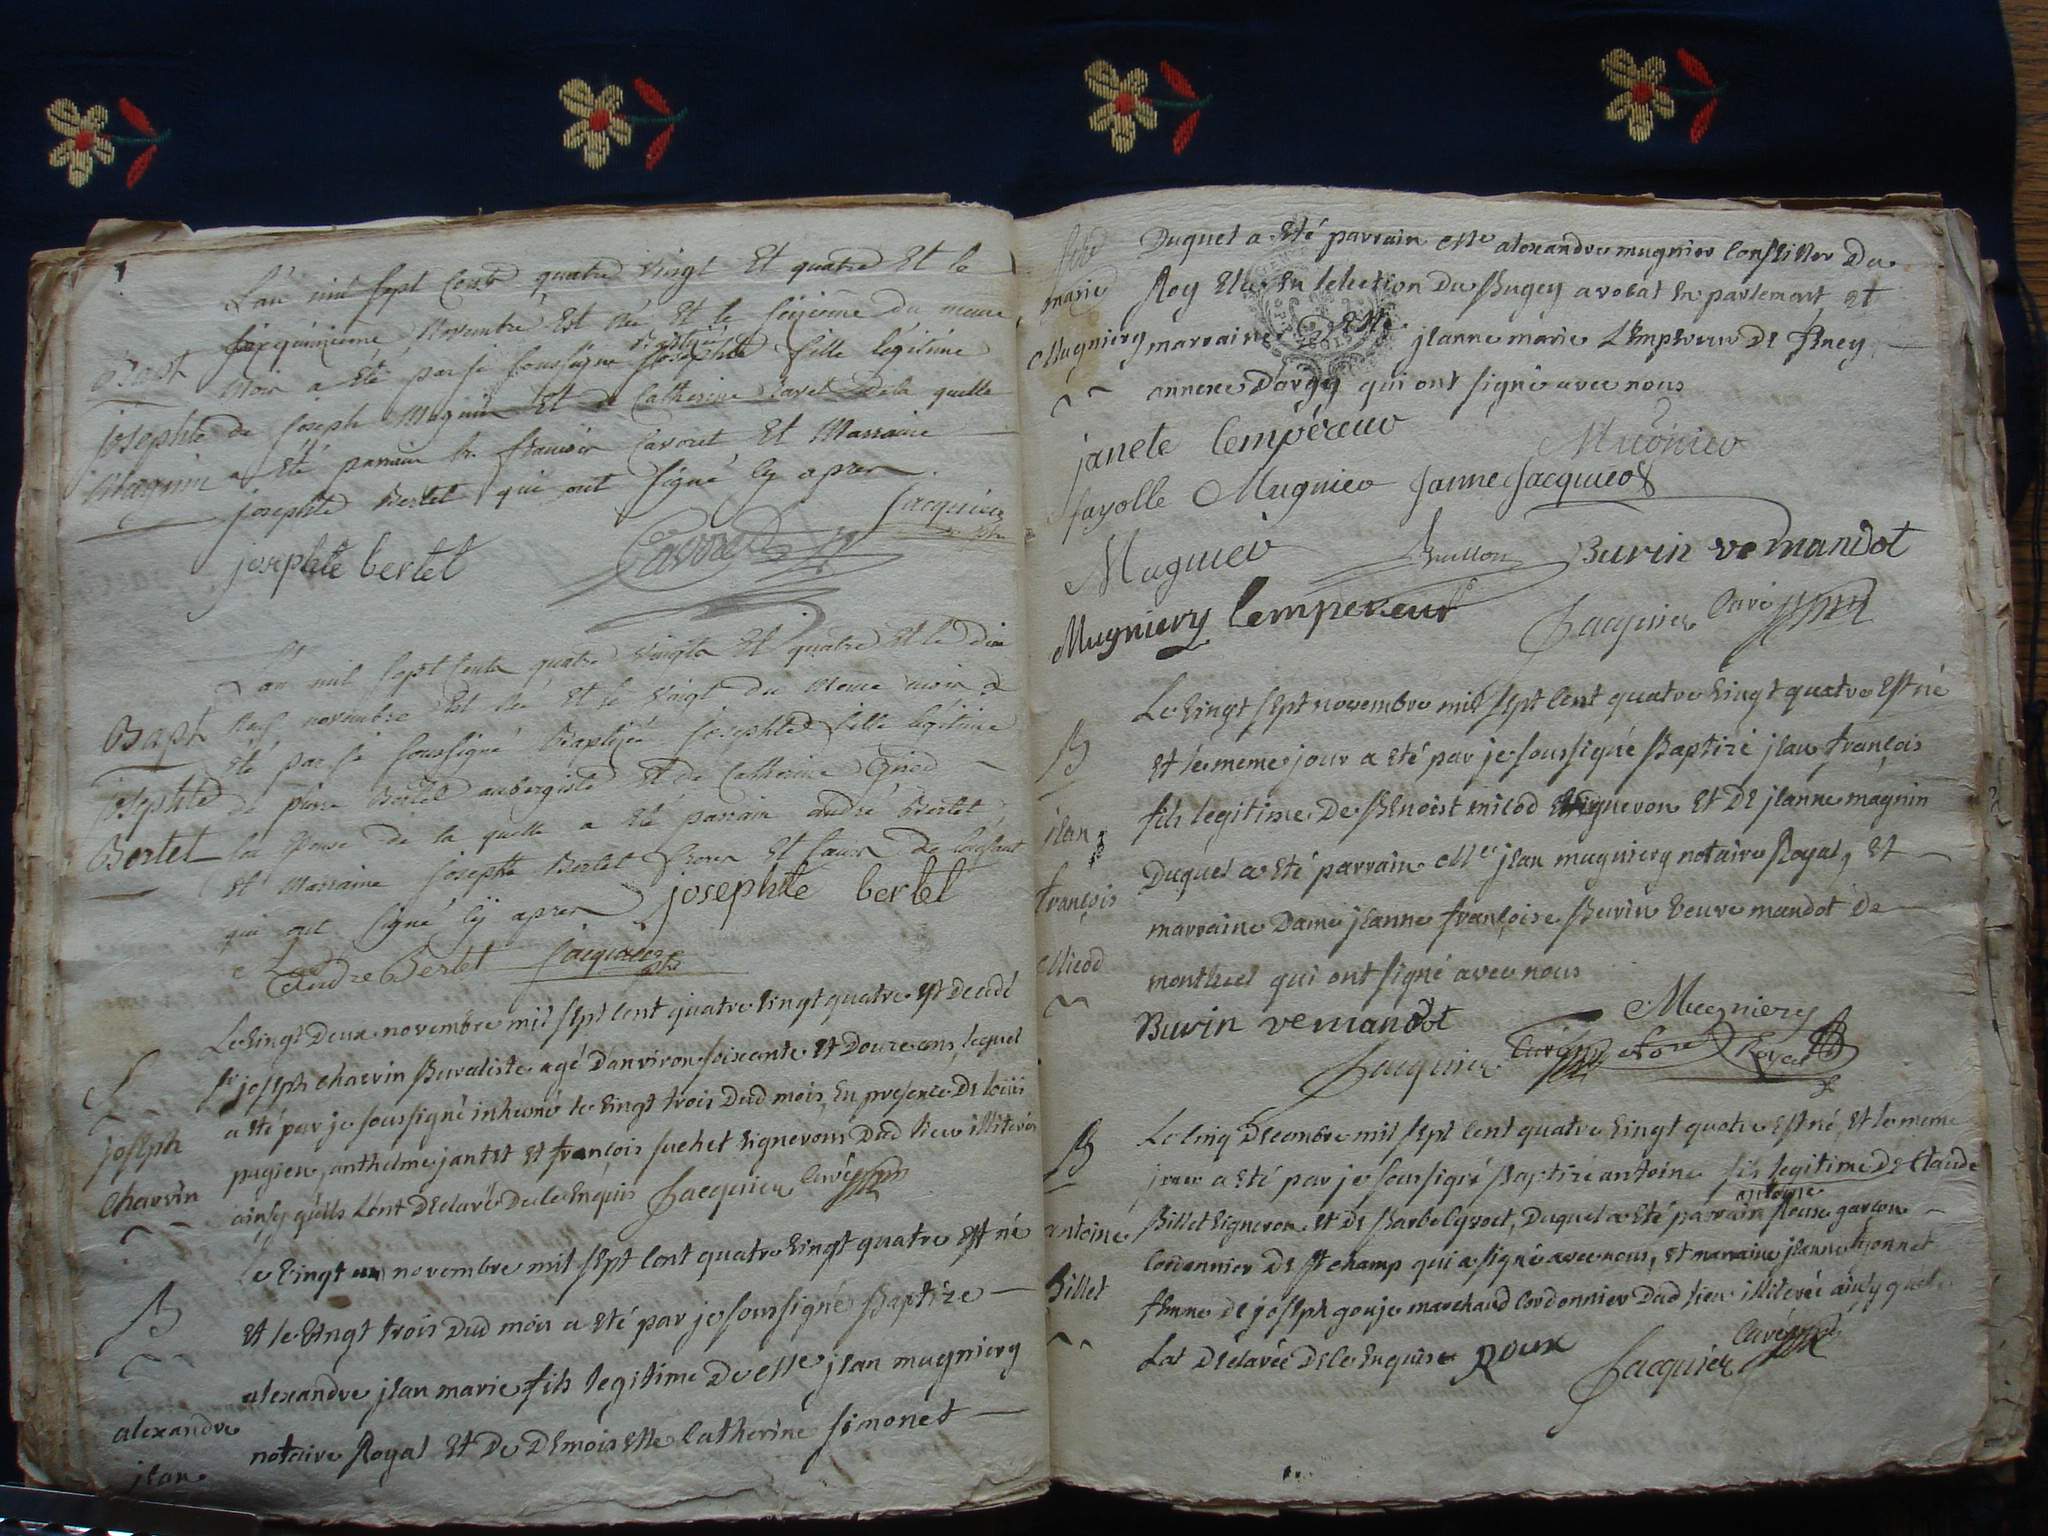 L'an mil sept cents quatre vingt et quatre et le
quinzieme Novembre est née et le seizieme du meme
Bapt
mois a été par je soussigné Baptizée Josephte fille légitime
josephte
de Joseph Magnin et de Catherine Ravet de la quelle
Magnin
a été parrain Sr. françois Cavoret et Marraine
josephte Bertet qui ont signé cy apres
Jacquier
josephte bertet Cavoret
L'an mil sept cents quatre vingts et quatre et le dix
neuf novembre est née et le vingt du meme mois a
Bapt
été par je soussigné Baptizée Josephte fille légitime
josephte
de pierre Bertet aubergiste et de Catherine
Bertet
son epouse de la quelle a été parrain andré Bertet
et Marraine josephte Bertet frere et soeur de l'enfant
qui ont signé cy apres josephte bertet
andre Bertet Jacquier
Le vingt deux novembre mil sept cent quatre vingt quatre est decedé
S
Sr joseph charvin Buraliste agé d'environ soixante et douze ans, lequel
a eté par je soussigné inhumé le vingt trois dud mois, en presence de loüis
joseph
pugieu, anthelme jantet et françois suchet vignerons dud lieu illiterés
charvin
ainsy qu'ils l'ont declaré de ce enquis Jacquier Curé
Le vingt un novembre mil sept cent quatre vingt quatre est né
B
et le vingt trois dud mois a eté par je soussigné Baptizé
alexandre jean marie fils legitime de Me jean mugniery
alexandre
notaire Royal et de demoiselle Catherine simonet
jean
marie
Duquel a eté parrain Me alexandre mugnier Conseiller du
Roy elu en l'election du Bugey avocat en parlement et
Mugniery
marraine jeanne marie L'Empereur de
annexe d'argy qui ont signé avec nous
janete lempéreur
Mugnier
fayolle Mugnier Janne Jacquieot
Mugnier Brillon Burin ve mandot
Mugniery lempereur Jacquier Curé
Le vingt sept novembre mil sept cent quatre vingt quatre est né
B
et le meme jour a eté par je soussigné Baptizé jean françois
jean
fils legitime de Benoist micod vigneron et de jeanne magnin
Duquel a eté parrain Me jean mugniery notaire Royal, et
françois
marraine Dame jeanne françoise Burin veuve mandot de
Micod
montluel qui ont signé avec nous
Burin ve mandot Mugniery
Jacquier Curé nore Royal
Le cinq decembre mil sept cent quatre vingt quatre est né, et le meme
B
jour a eté par je soussigné Baptizé antoine fils legitime de Claude
antoine
Billet vigneron et de Barbe Cyvoct, Duquel a eté parrain antoine Roux garçon
Cordonnier de St champ qui a signé avec nous, et marraine jeanne lyonnet
Billet
femme de joseph gouje marchand Cordonnier dud lieu illiterée ainsy qu'el
L'at declarée de ce enquise Roux Jacquier Curé